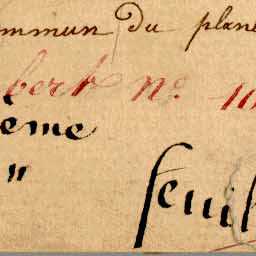 ommun du plane
bert no. 11
eme
"
feuil